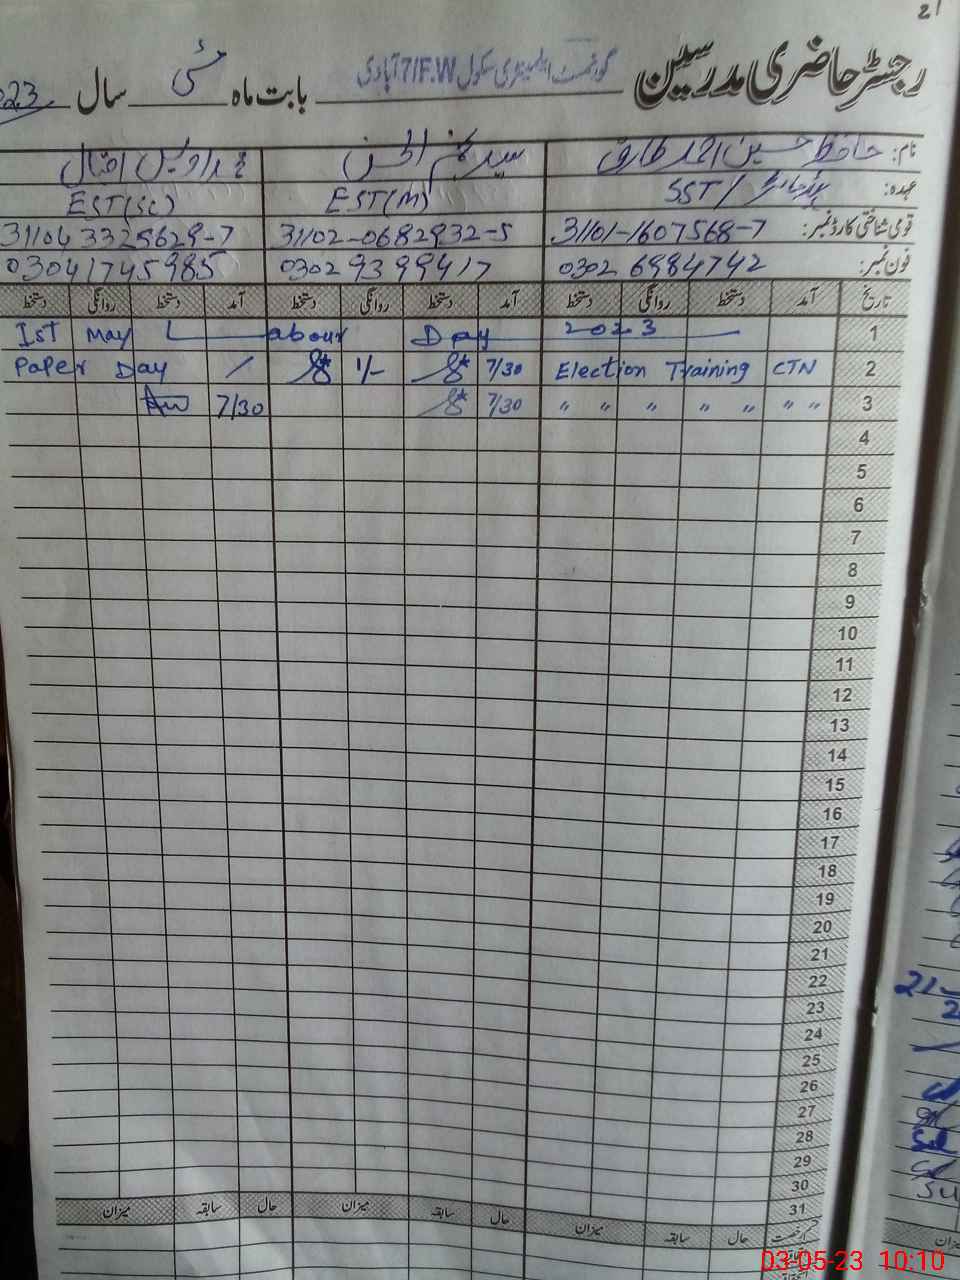 21
رجسٹر حاضری مدرسین گورنمنٹ ایلیمنٹری سکول 71F.W آبادی بابت ماہ مئی سال 023
نام: حافظ حسین احمد طارق سید نجم الحسن محمد اویس اقبال
عہدہ: SST / EST(M) EST(SC)
قومی شناختی کارڈ نمبر: 31101-1607568-7 31102-0682932-5 31104 3329629-7
فون نمبر: 0302 6984742 0302 9399417 03041745985
تاریخ آمد دستخط روانگی دستخط آمد دستخط روانگی دستخط آمد دستخط روانگی دستخط
1 Ist May Labour Day 2023
2 Paper Day / 1/- 7/30 Election Training CTN
3 7/30 7/30 " " " " " " "
4
5
6
7
8
9
10
11
12
13
14
15
16
17
18
19
20
21
22
23
24
25
26
27
28
29
30
31
حال سابقہ میزان حال سابقہ میزان حال سابقہ میزان
21
2
03-05-23 10:10